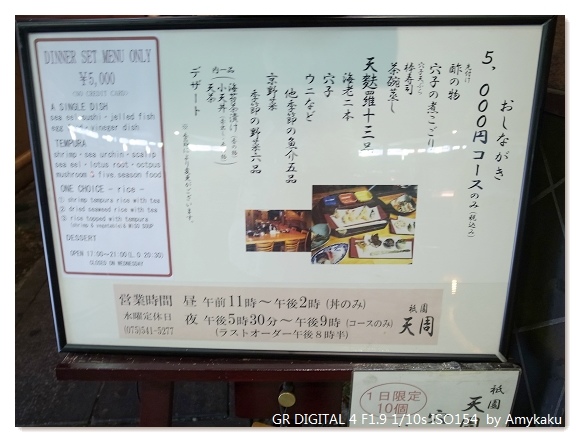 おしながき
5,000円コースのみ(税込み)
先付け
酢の物
穴子の煮こごり
棒寿司
茶碗蒸し
天麩羅十三品
海老二本
穴子
ウニなど
他季節の魚介五品
京野菜
季節の野菜六品
内一品
海苔茶漬け
小天丼
天茶
デザート
DINNER SET MENU ONLY
¥5,000
(NO CREDIT CARD)
A SINGLE DISH
sea eel sushi · jelled fish
vinegar dish
TEMPURA
shrimp · sea urchin · scallop
sea eel · lotus root · octpus
mushroom & five season food
ONE CHOICE - rice -
① shrimp tempura rice with tea
② dried seaweed rice with tea
③ rice topped with tempura
(shrimp & vegetable) & MISO SOUP
DESSERT
OPEN 17:00~21:00(L.O 20:30)
CLOSED ON WEDNESDAY
営業時間 昼 午前11時~午後2時(丼のみ)
水曜定休日 夜 午後5時30分~午後9時(コースのみ)
(075)541-5277 (ラストオーダー午後8時半)
祇園
天周
1日限定
10個
祇園
天周
GR DIGITAL 4 F1.9 1/10s ISO154 by Amykaku